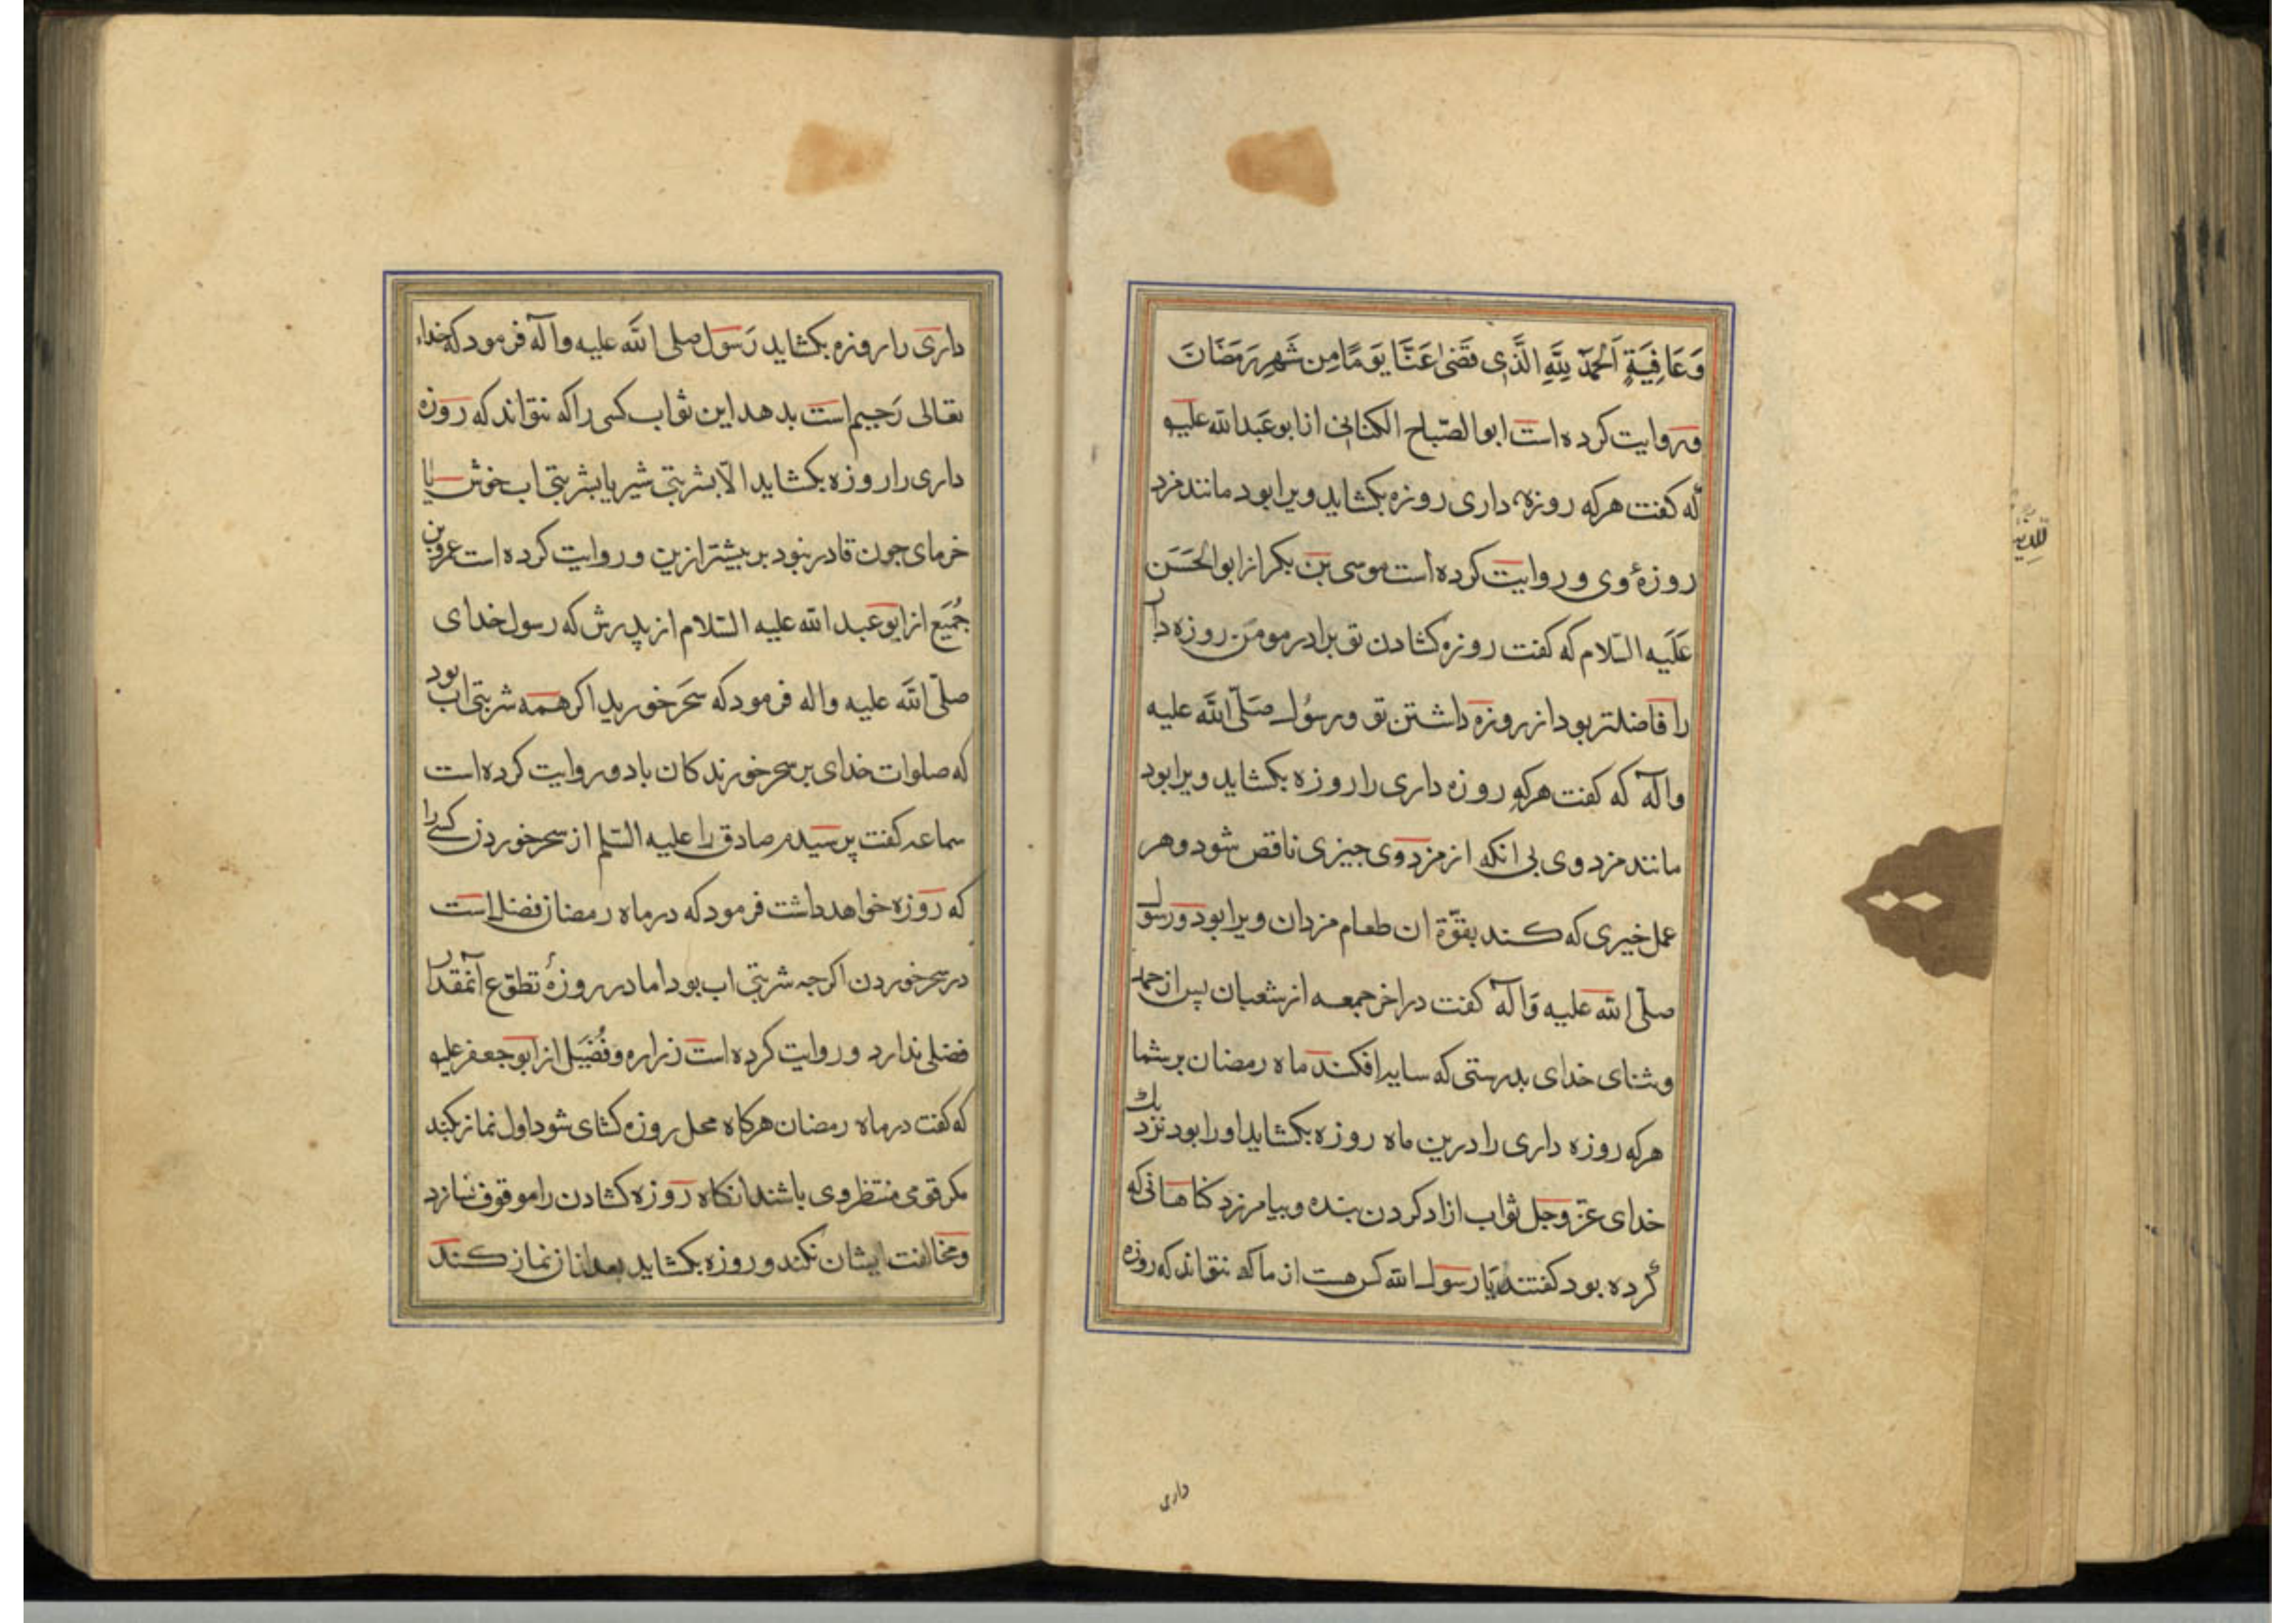 وَعَافِيَةٍ اَلْحَمْدُ لِلّٰهِ الَّذِي قَضٰى عَنَّا يَوْمًا مِن شَهرِ رَمَضَانَ
وروایت کرده است ابوالصّباح الکنانی از ابوعَبدالله علیه
که کفت هرکه روزه داری روزه بکشاید ویرا بود مانند مزد
روزهٔ وی و روایت کرده است موسی بن بکر از ابوالحَسَن
عَلَیه السّلام که کفت روزه کشادن تو برادر مومن روزه دار
را فاضلتر بود از روزه داشتن تو و رسُول صَلّی الله علیه
وآله که کفت هرکه روزه داری را روزه بکشاید ویرا بود
مانند مزد وی بی انکه از مزد وی جیزی ناقص شود و هر
عمل خیری که کند بقوّة ان طعام مزدان ویرا بود و رسول
صلّی الله علیه وَآله کفت در اخر جمعه از شعبان پس از حمد
وثنای خدای بدرستی که سایه افکند ماه رمضان بر شما
هرکه روزه داری را درین ماه روزه بکشاید او را بود نزدیک
خدای عزّ وجل ثواب ازاد کردن بنده و بیامرزد کناهانی که
کرده بود کفتند یَا رسول الله کس هست از ما که نتواند که روزه
داری
داری را روزه بکشاید رَسول صلی الله علیه وآله فرمود که خدای
تعالی رَحیم است بدهد این ثواب کسی را که نتواند که روزه
داری را روزه بکشاید الّا بشربتی شیر یا بشربتی اب خوش یا
خرمای جون قادر نبود بر بیشتر ازین و روایت کرده است عمروبن
جُمَیع از ابوعبدالله علیه السّلام از پدرش که رسول خدای
صلّی الله علیه واله فرمود که سَحَر خورید اکر همه شربتی اب بود
که صلوات خدای بر سحرخورندکان باد و روایت کرده است
سماعه کفت پرسیدم صادق را علیه السّلم از سحر خوردن کسی را
که روزه خواهد داشت فرمود که در ماه رمضان فضل است
در سحر خوردن اکرجه شربتی اب بود اما در روزهٔ تطوّع آنمقدار
فضلی ندارد و روایت کرده است زراره وفُضَیل از ابوجعفر علیه
که کفت در ماه رمضان هرکاه محل روزه کشای شود اول نماز بکند
مکر قومی منتظر وی باشند انکاه روزه کشادن را موقوف نسازد
ومخالفت ایشان نکند و روزه بکشاید بعد ازان نماز کند